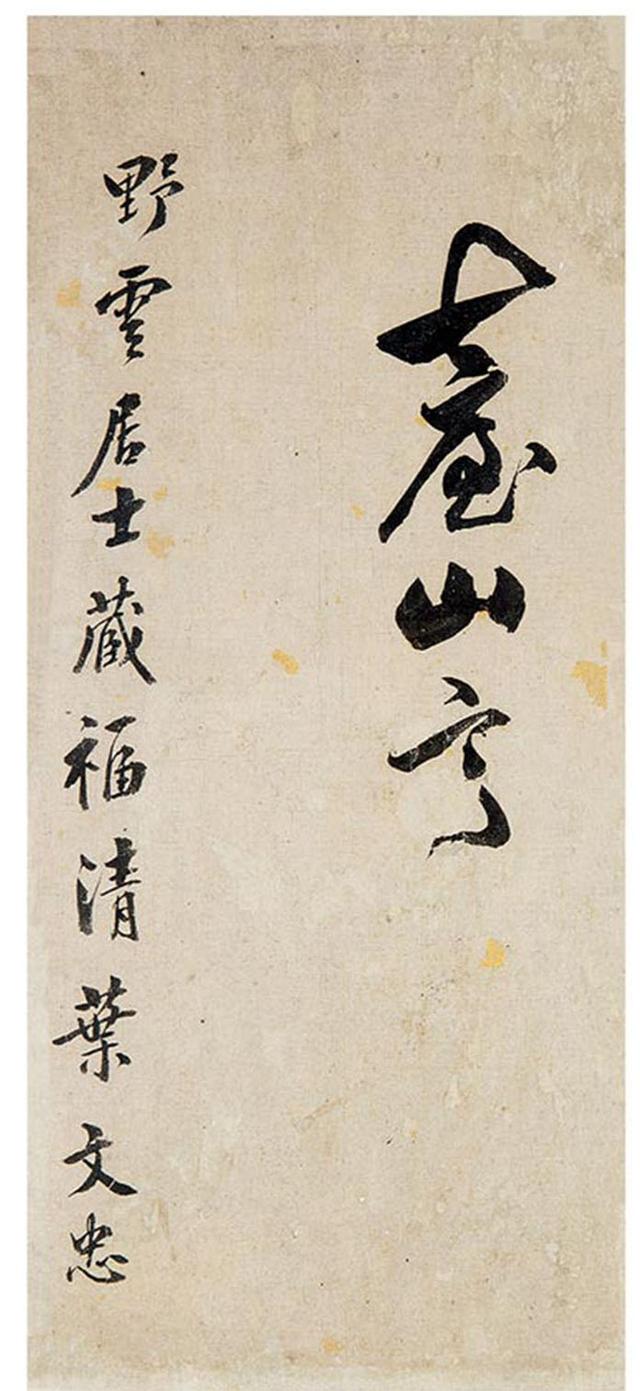 臺山
野雲居士藏福清葉文忠